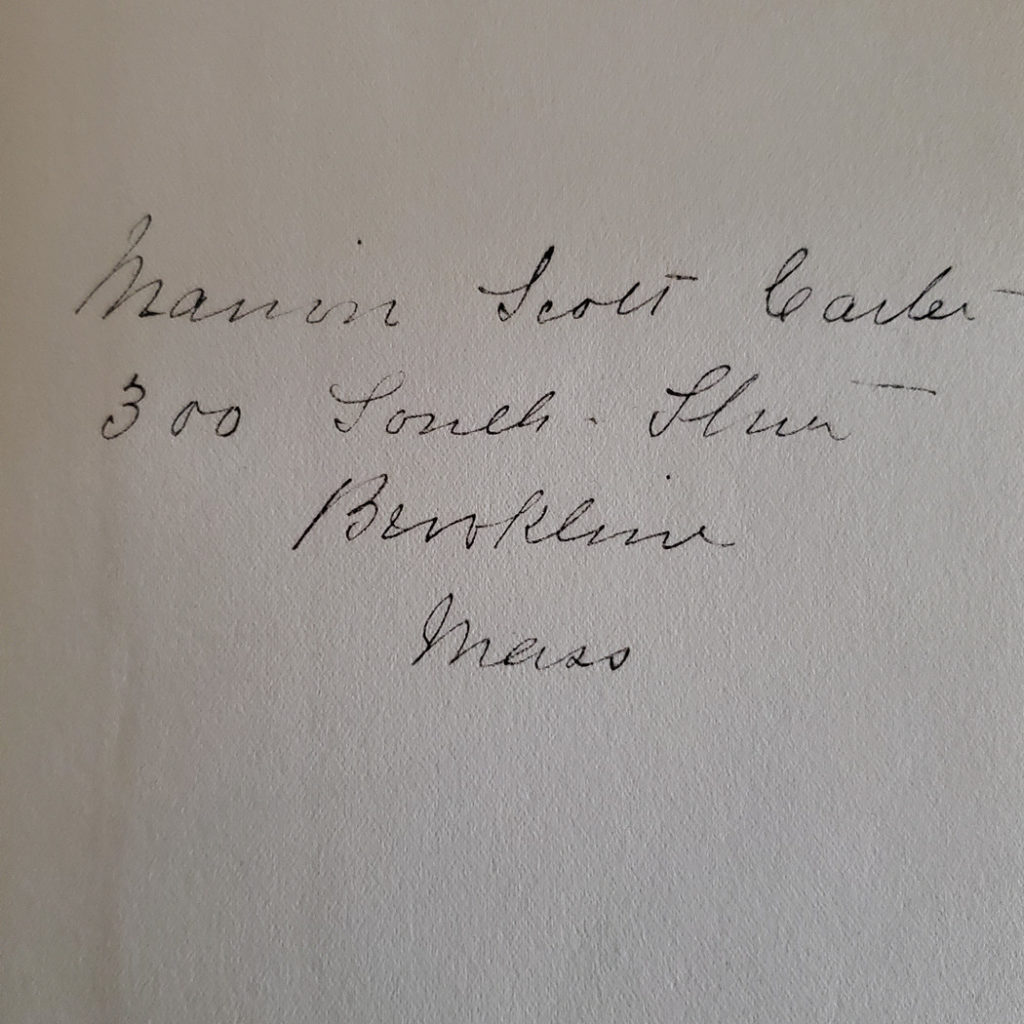 Marion Scott Carter
300 South Street
Brookline
Mass